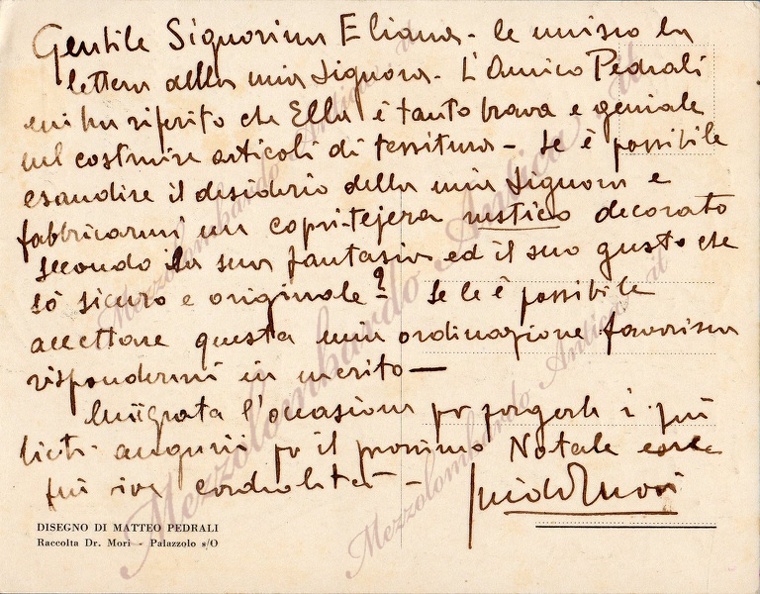 Gentile Signorina Eliana - le unisco la
lettera della mia Signora - L'Amico Pedrali
mi ha riferito che Ella è tanto brava e geniale
nel costruire articoli di tessitura - Se è possibile
esaudire il desiderio della mia Signora e
fabbricarmi un copri-tejera rustico decorato
secondo la sua fantasia ed il suo gusto che
sò sicuro e originale? - Se le è possibile
accettare questa mia ordinazione favorisca
rispondermi in merito -
Mi è grata l'occasione per porgerle i più
lieti auguri per il prossimo Natale
più viva cordialità -
Guido Mori
DISEGNO DI MATTEO PEDRALI
Raccolta Dr. Mori - Palazzolo s/O
Mezzolombardo Antica .it
Mezzolombardo Antica .it
Mezzolombardo Antica .it